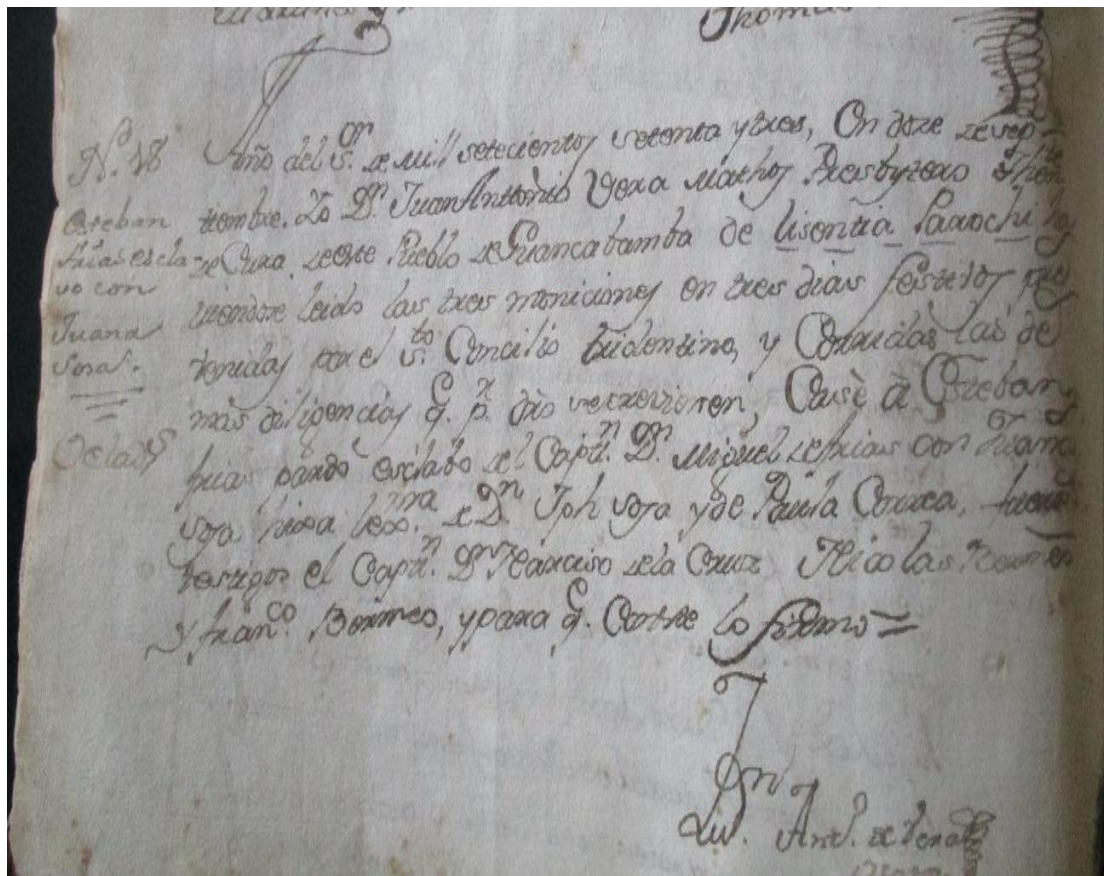 Thomas
N.º 18
Esteban
frias escla-
vo con
Juana
Sora.
Velados
Año del S.or de Mill setecientos setenta y tres, En doze de sep-
tiembre. Yo D.n Juan Antonio Vera Mathos Presbytero Then.te
de Cura de este Pueblo de Guancabamba de lisensia Parrochi
viendose leido las tres moniciones en tres dias festivos pre
venidas por el S.to Concilio tridentino, y Corridas las de
mas diligencias q. p.r dro se requieren, Casè à Esteban
frias pardo esclabo del Capt.n D.n Miguel de frias con Juana
sora hixa lexx.ma de D.n Jph sora y de Paula Correa, fueron
testigos el Capt.n D.n Narciso de la Cruz Nicolas
y fran.co Bermeo, y para q. Conste lo firmo =
Ant.o de Vera